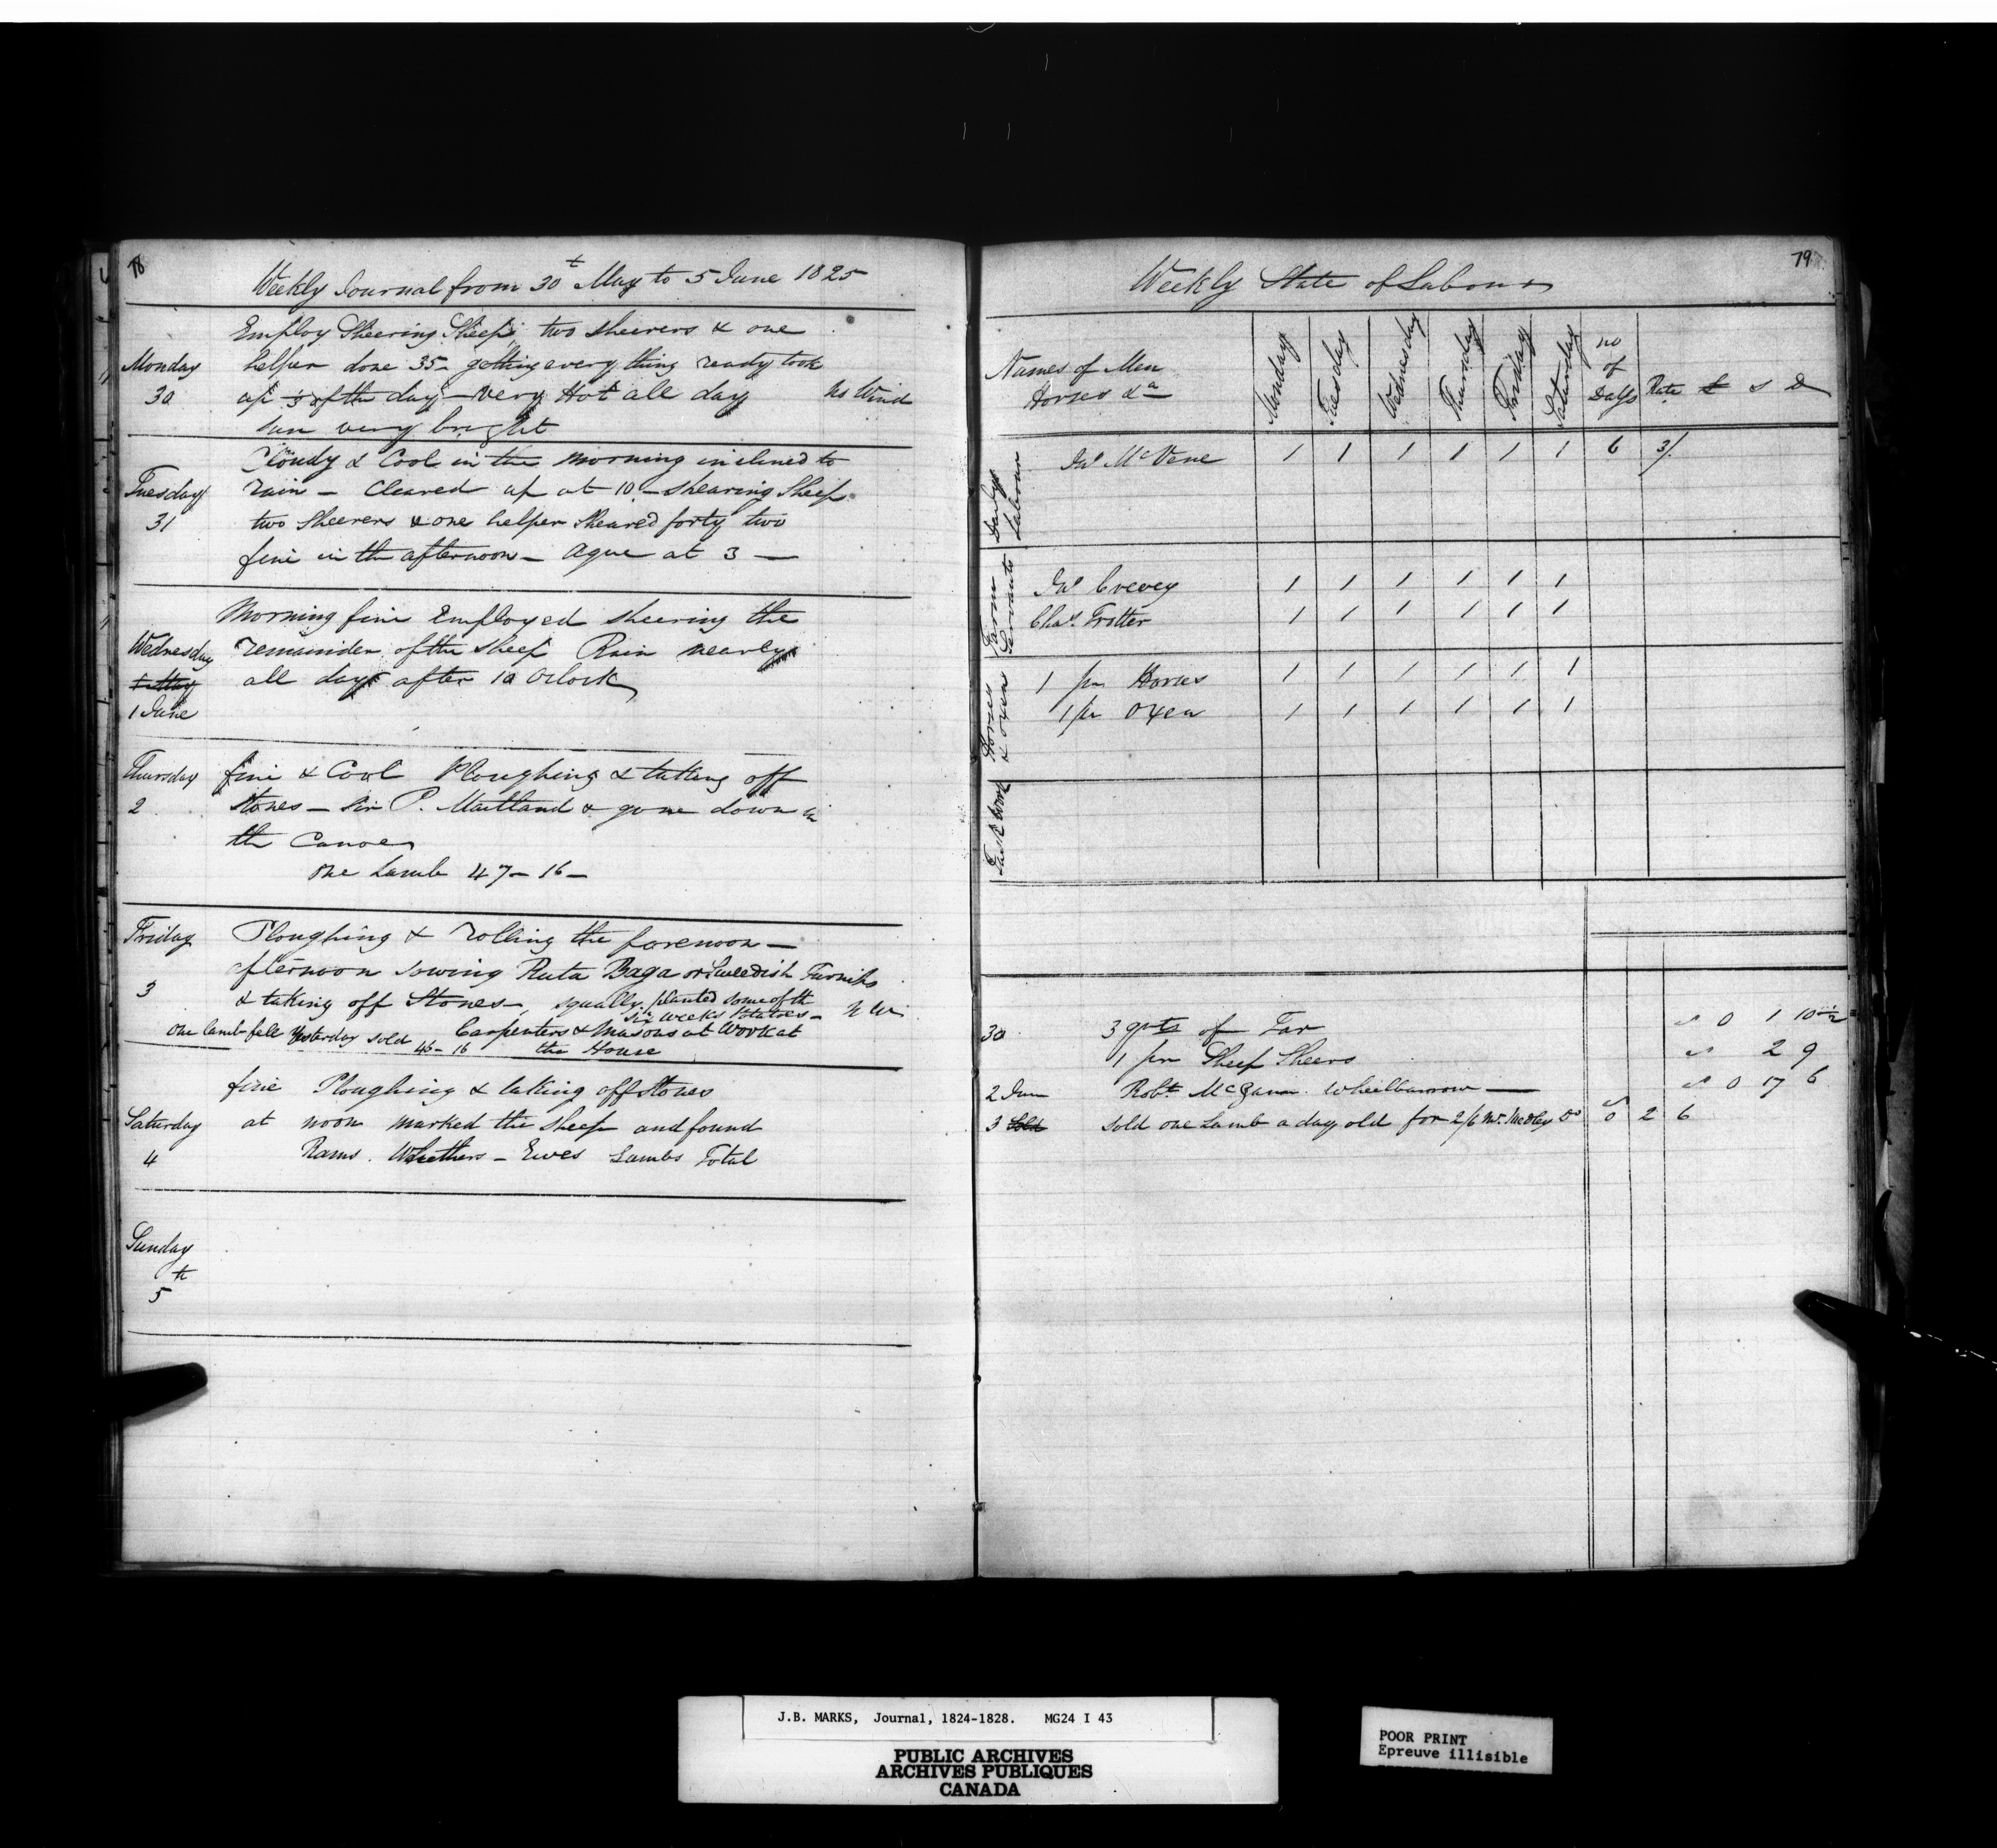 78
Weekly Journal from 30t May to 5 June 1825
Employ Sheering Sheep, two sheerers & one
Monday helper done 35 - getting every thing ready took
30 up of the day - very Hot all day No Wind
sun very bright
Cloudy & Cool in the morning inclined to
Tuesday rain - Cleared up at 10 - shearing Sheep
31 two Sheerers & one helper sheared forty two
fine in the afternoon - Ague at 3 -
Morning fine Employed sheering the
Wednesday remainder of the sheep Rain nearly
all day after 10 Oclock
1 June
Thursday fine & Cool Ploughing & taking off
2 Stones - Sir P. Maitland & gone down in
the Canoe
one Lamb 47 - 16 -
Friday Ploughing & rolling the forenoon -
afternoon sowing Ruta Baga or Sweedish Turnips
3 & taking off Stones - squally, planted some of the
six weeks Potatoes -
one lamb fell yesterday sold Carpenters & Masons at work at
46 - 16 the House
fine Ploughing & taking off Stones
Saturday at noon marked the sheep and found
4 Rams. Whethers - Ewes Lambs Total
Sunday
5
79
Weekly State of Labour
Names of Men
Horses &a
Monday Tuesday Wednesday Thursday Friday Saturday no of Days Rate £ s D
Daily Labour
Jno McVene 1 1 1 1 1 1 6 3/
Farm Servants
Jno Crevey 1 1 1 1 1 1
Chas. Trotter 1 1 1 1 1 1
Horses & Oxen
1 pr Horses 1 1 1 1 1 1
1 pr Oxen 1 1 1 1 1 1
Task Work
30 3 qrts of Tar 0 1 10 1/2
1 pr Sheep Sheers 2 9
2 June Robt. Wheelbarrow - 0 17 6
3 Sold Sold one Lamb a day old for 2/6 Mr. Medley Do 0 2 6
J.B. MARKS, Journal, 1824-1828. MG24 I 43
PUBLIC ARCHIVES
ARCHIVES PUBLIQUES
CANADA
POOR PRINT
Epreuve illisible